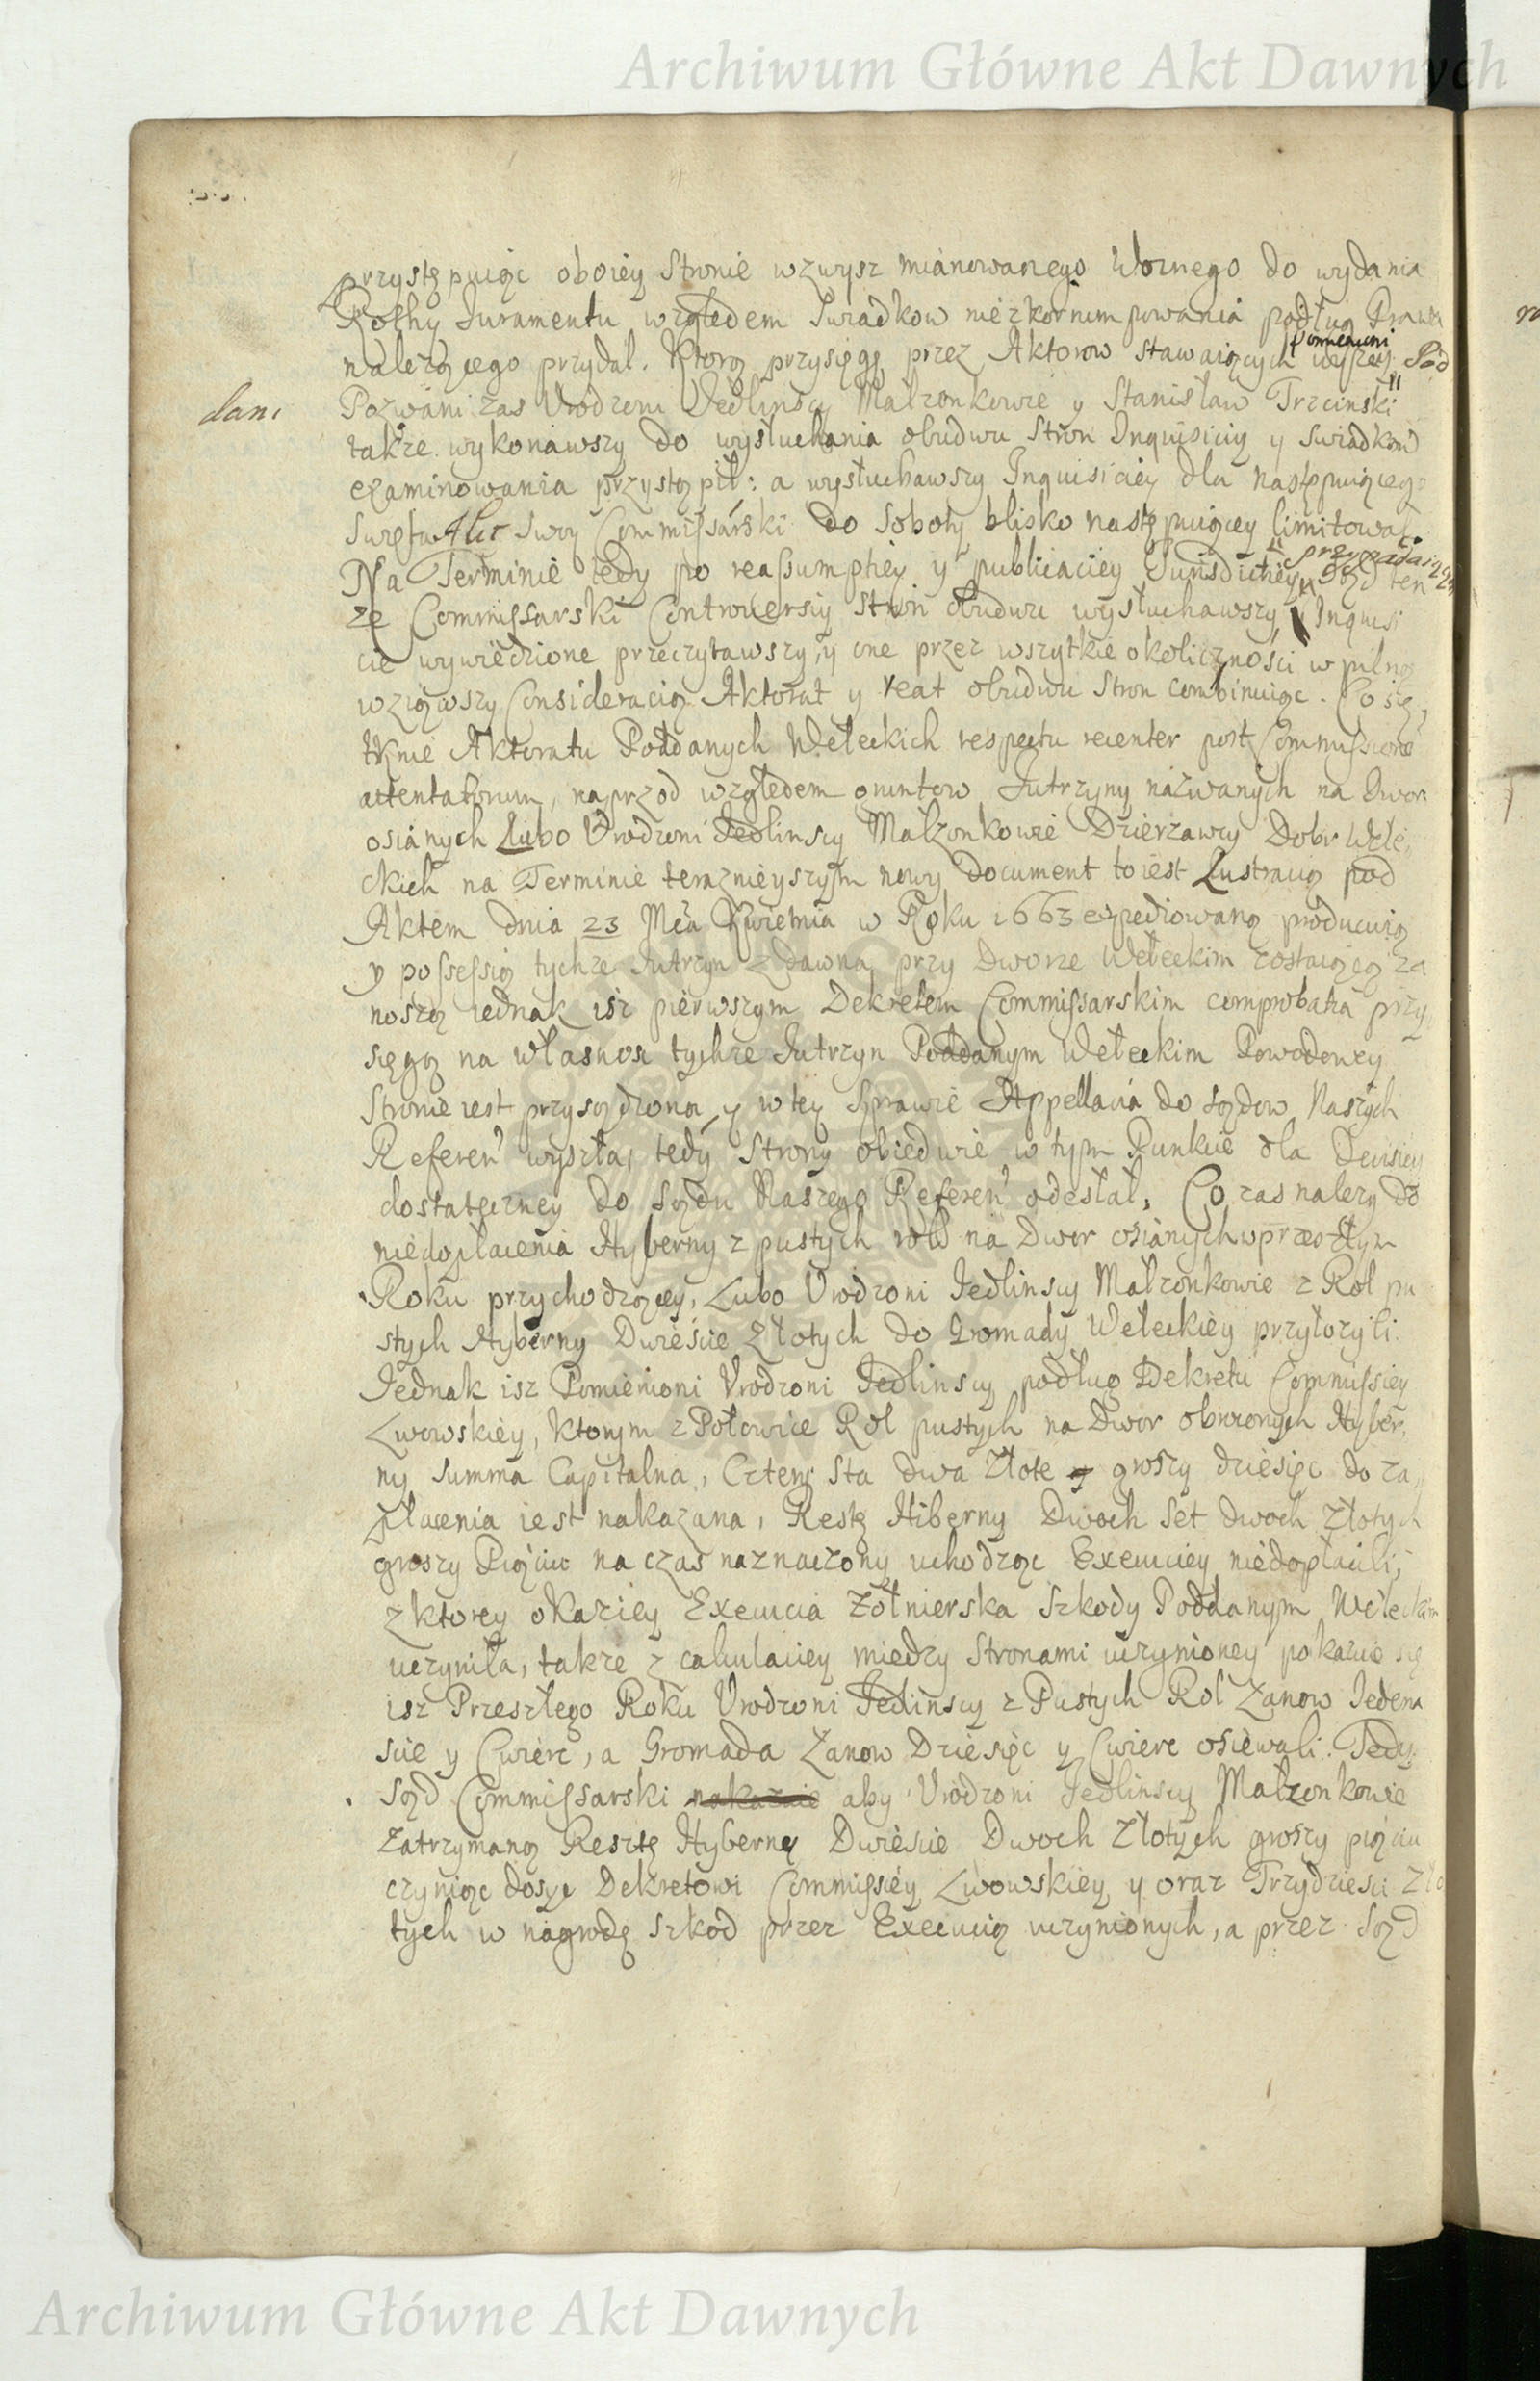 Archiwum Główne Akt Dawnych
przystępuiąc oboiey Stronie wzwysz mianowanego Woznego do wydania
Rothy Iuramentu względem Swiadkow nieżkorumpowania podług Prawa
należącego przydał. Ktorą przysięgę przez Aktorow stawaiących wyszey Pod
pomienieni
dani Pozwani zas Urodzeni Jedlinscy Małzonkowie y Stanisław Trzcinski
także wykonawszy do wysłuchania obudwu Stron Inquisiciy y Swiadkow
examinowania przystąpił: a wysłuchawszy Inquisiciey dla następuiącego
Swięta Sąd Commissarski do Soboty blisko następuiącey limitował.
przypadaiącym
Na Terminie tedy po reassumptiey y publicaciey Iurisdictiey Sąd ten
ze Commissarski Controversiy Stron obudwu wysłuchawszy Inquisi
cie wywiedzione przeczytawszy, y one przez wszytkie okoliczności w pilną
wziąwszy Consideracią Aktorat y reat obudwu Stron combinuiąc. Co się
tknie Aktoratu Poddanych Wełeckich respectu recenter post Commissione
attentatorum, naprzod względem gruntow Jutrzyny nazwanych na Dwor
osianych Lubo Urodzoni Jedlinscy Małzonkowie Dzierzawcy Dobr Wełe
ckich na Terminie teraznieyszym nowy Document to iest Lustracią pod
Aktem dnia 23 Mca Kwietnia w Roku 1663 expediowaną producuią
y possessią tychze Jutrzyn z dawna przy Dworze Wełeckim zostaiącą za
noszą iednak isz pierwszym Dekretem Commissarskim comprobatia przy
sięgą na własnosc tychze Jutrzyn Poddanym Wełeckim Powodowey
Stronie iest przysądzona y w tey Sprawie Appellacia do Sądow Naszych
Referen wyszła, tedy Strony obiedwie w tym Punkcie dla Decisiey
dostateczney do Sądu Naszego Referen odesłał. Co zas nalezy do
niedopłacenia Hyberny z pustych rol na Dwor osianych w przeszłym
Roku przychodzącey, Lubo Urodzoni Jedlinscy Małzonkowie z Rol pu
stych Hyberny Dwiescie Złotych do Gromady Wełeckiey przyłozyli.
Jednak isz Pomienioni Urodzoni Jedlinscy podług Dekretu Commissiey
Lwowskiey, ktorym z Połowice Rol pustych na Dwor obroconych Hyber,
ny Summa Capitalna, Cztery Sta dwa Złote groszy dziesięc do za,
płacenia iest nakazana, Resztę Hiberny Dwoch Set dwoch Złotych
groszy Piąciu na czas naznaczony uchodząc Execuciey niedopłacili,
z ktorey okaziey Execucia Zołnierska Szkody Poddanym Wełeckim
uczyniła, także z calculaciey miedzy Stronami uczynioney pokazuie się
isz Przeszłego Roku Urodzoni Jedlinscy z Pustych Rol Łanow Jedena
scie y Cwierc, a Gromada Łanow Dziesięc y Cwierc osiewali. Tedy
Sąd Commissarski nakazuie aby Urodzoni Jedlinscy Małzonkowie
zatrzymaną Resztę Hyberny Dwiescie Dwoch Złotych groszy piąciu
czyniąc dosyc Dekretowi Commissiey Lwowskiey y oraz Trzydziesci Zło
tych w nagrodę Szkod przez Execucią uczynionych, a przez Sąd
Archiwum Główne Akt Dawnych